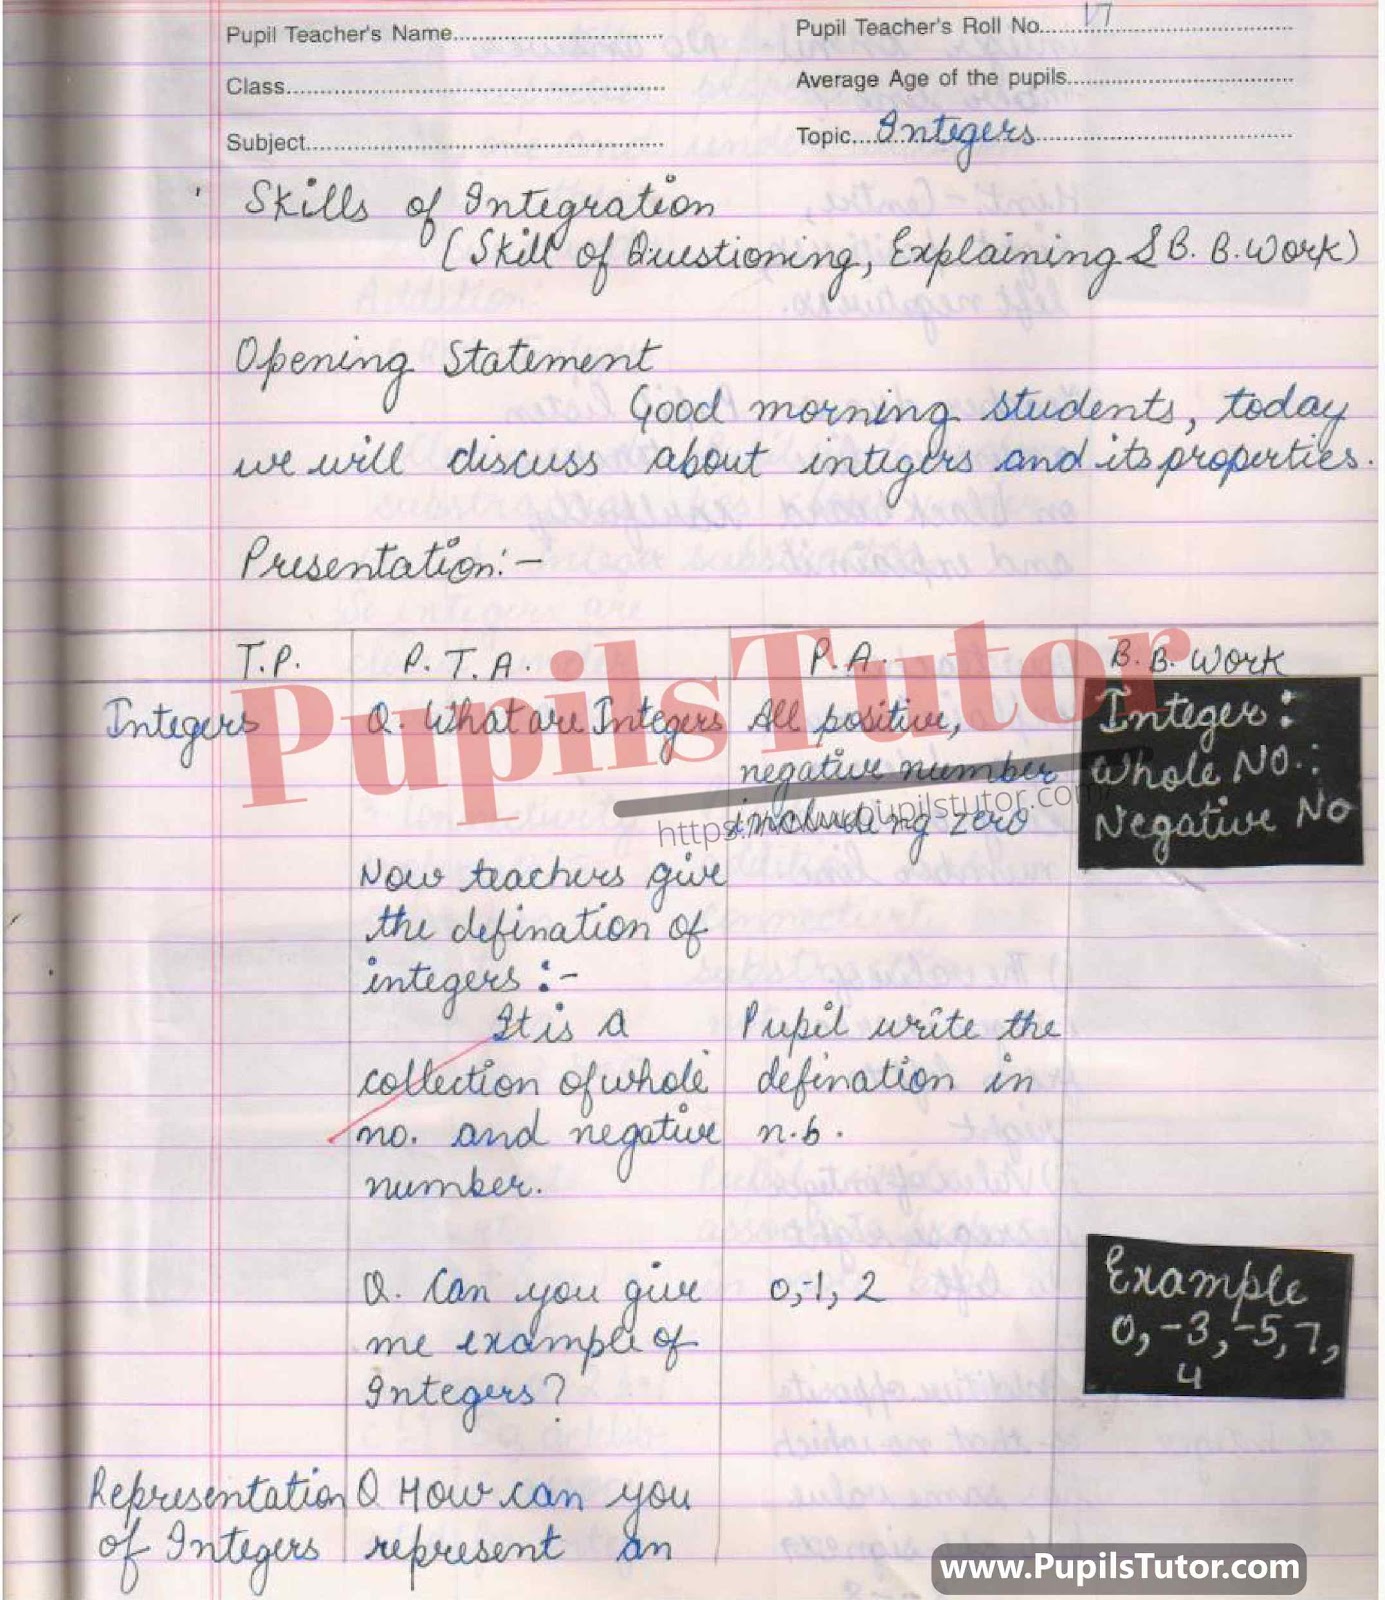 Pupil Teacher's Name
Pupil Teacher's Roll No. 17
Class
Average Age of the pupils
Subject
Topic Integers
Skills of Integration
(Skill of Questioning, Explaining & B.B. Work)
Opening Statement
Good morning students, today
we will discuss about integers and its properties.
Presentation:-
T.P.
P.T.A.
P.A.
B.B. Work
Integers
Q. What are Integers
All positive,
negative number
including zero
Integer:
Whole NO.:
Negative NO
Now teachers give
the defination of
integers:-
It is a
collection of whole
no. and negative
number.
Pupil write the
defination in
n.b.
Q. Can you give
me example of
Integers?
0,-1, 2
Example
0, -3, -5, 7,
4
Representation
of Integers
Q How can you
represent an
PupilsTutor
www.PupilsTutor.com